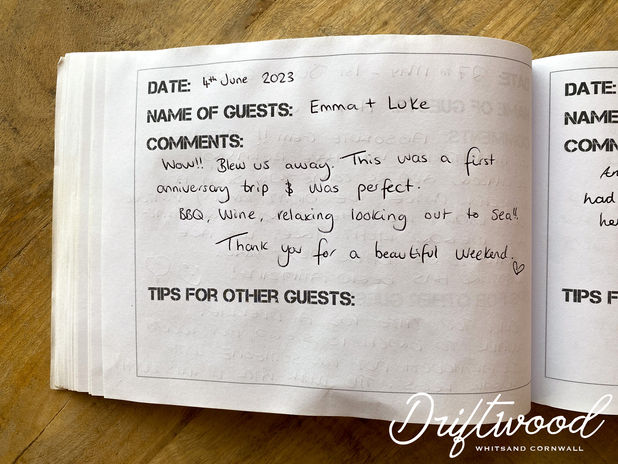 DATE: 4th June 2023
NAME OF GUESTS: Emma + Luke
COMMENTS:
Wow!! Blew us away. This was a first
anniversary trip & was perfect.
BBQ, Wine, relaxing looking out to sea!!
Thank you for a beautiful weekend.
TIPS FOR OTHER GUESTS:
DATE:
NAME
COMM
had
he
TIPS F
Driftwood
WHITSAND CORNWALL